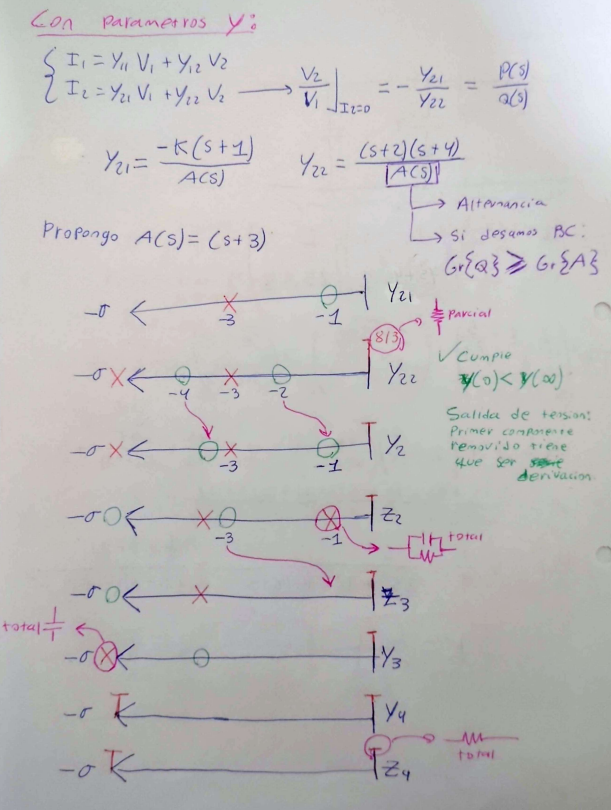 Con parametros Y:
I1 = Y11 V1 + Y12 V2
I2 = Y21 V1 + Y22 V2 → V2/V1 |I2=0 = - Y21/Y22 = P(s)/Q(s)
Y21 = -K(s+1)/A(s) Y22 = (s+2)(s+4)/A(s)
→ Alternancia
→ Si desamos BC:
Gr{Q} ≥ Gr{A}
Propongo A(s) = (s+3)
-σ -3 -1 Y21
8/3 → parcial
-σ -4 -3 -2 Y22
✓ Cumple
Y(0) < Y(∞)
Salida de tension:
Primer componente
removido tiene
que ser
derivacion.
-σ -3 -1 Y2
-σ -3 -1 Z2
total
-σ Z3
total
-σ Y3
-σ Y4
total
-σ Z4